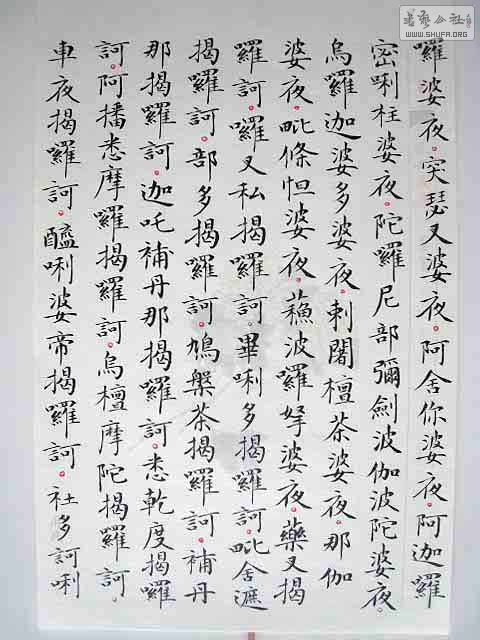 囉婆夜。突瑟叉婆夜。阿舍你婆夜。阿迦囉
密唎柱婆夜。陀囉尼部彌劍波伽波陀婆夜。
烏囉迦婆多婆夜。剌闍檀茶婆夜。那伽
婆夜。毗條怛婆夜。蘓波囉拏婆夜。藥叉揭
囉訶。囉叉私揭囉訶。畢唎多揭囉訶。毗舍遮
揭囉訶。部多揭囉訶。鳩槃茶揭囉訶。補丹
那揭囉訶。迦吒補丹那揭囉訶。悉乾度揭囉
訶。阿播悉摩囉揭囉訶。烏檀摩陀揭囉訶。
車夜揭囉訶。醯唎婆帝揭囉訶。社多訶唎
WWW.SHUFA.ORG